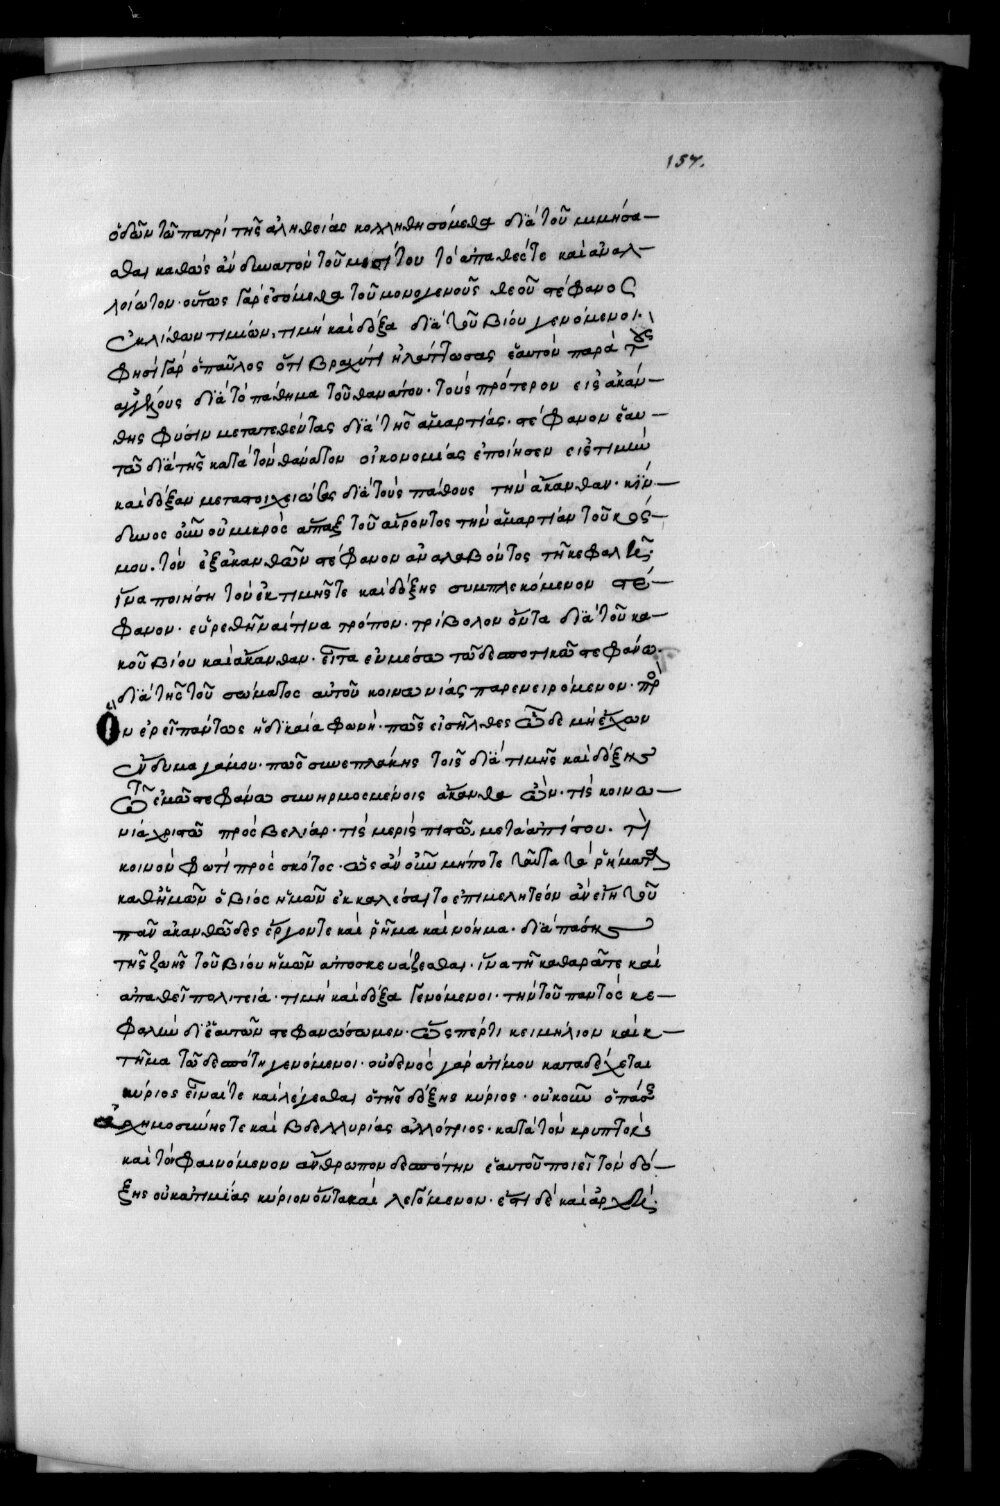 157.
ὁδῶν τῶ πατρί τῆς ἀληθείας κολληθησόμεθα διὰ τοῦ μιμήσα–
σθαι καθὼς ἂν δυνατὸν τοῦ μεσίτου τὸ ἀπαθές τε καὶ ἀναλ–
λοίωτον· οὕτως γὰρ ἐσόμεθα τοῦ μονογενοῦς θεοῦ στέφανος
ἐκ λίθων τιμίων, τιμὴ καὶ δόξα διὰ τοῦ βίου γενόμενοι·
φησὶ γὰρ ὁ παῦλος ὅτι βραχύ τι ἠλάττωσας ἑαυτὸν παρὰ τοὺς
ἀγγέλους διὰ τὸ πάθημα τοῦ θανάτου· τοὺς πρότερον εἰς ἀκάν–
θης φύσιν μετατεθέντας διὰ τῆς ἁμαρτίας· στέφανον ἑαυ–
τῶ διὰ τῆς κατὰ τὸν θάνατον οἰκονομίας ἐποίησεν εἰς τιμὴν
καὶ δόξαν μεταστοιχειώσας διὰ τοὺς πάθους τὴν ἄκανθαν· κίν–
δυνος οὖν οὐ μικρὸς ἅπαξ τοῦ αἴροντος τὴν ἁμαρτίαν τοῦ κόσ–
μου· τὸν ἐξ ἀκανθῶν στέφανον ἀναλαβόντος τῇ κεφαλῇ·
ἵνα ποιήσῃ τὸν ἐκ τιμῆς τε καὶ δόξης συμπλεκόμενον στέ–
φανον· εὑρεθῆναί τινα τρόπον· τρίβολον ὄντα διὰ τοῦ κα–
κοῦ βίου καὶ ἄκανθαν· εἶτα ἐν μέσω τῶ δεσποτικῶ στεφάνω·
διὰ τῆς τοῦ σώματος αὐτοῦ κοινωνίας παρενειρόμενον· πρὸς
ὃν ἐρεῖ πάντως ἡ δικαία φωνή· πῶς εἰσῆλθες ὧδε μὴ ἔχων
ἔνδυμα γάμου· πῶς συνεπλάκης τοῖς διὰ τιμῆς καὶ δόξης
τῶ ἐμῶ στεφάνω συνηρμοσμένοις ἄκανθα ὤν· τίς κοινω–
νία χριστῶ πρὸς βελίαρ· τίς μερὶς πιστῶ, μετὰ ἀπίστου· τί
κοινὸν φωτὶ πρὸς σκότος· ὡς ἂν οὖν μήποτε ταῦτα τὰ ῥήματα
καθ' ἡμῶν ὁ βίος ἡμῶν ἐκκαλέσαιτο ἐπιμελητέον ἂν εἴη τοῦ
πᾶν ἀκανθῶδες ἔργον τε καὶ ῥῆμα καὶ νόημα· διὰ πάσης
τῆς ζωῆς τοῦ βίου ἡμῶν ἀποσκευάζεσθαι· ἵνα τῇ καθαρᾶ τε καὶ
ἀπαθεῖ πολιτεία· τιμὴ καὶ δόξα γενόμενοι· τὴν τοῦ παντὸς κε–
φαλὴν δι' ἑαυτῶν στεφανώσωμεν· ὥσπερ τι κειμήλιον καὶ κ–
τῆμα τῶ δεσπότη γενόμενοι· οὐδενὸς γὰρ ἀτίμου καταδέχεται
κύριος εἶναί τε καὶ λέγεσθαι ὁ τῆς δόξης κύριος· οὐκοῦν ὁ πάσης
ἀσχημοσύνης τε καὶ βδελλυρίας ἀλλότριος· κατὰ τὸν κρυπτὸν
καὶ τὸν φαινόμενον ἄνθρωπον δεσπότην ἑαυτοῦ ποιεῖ τὸν δό–
ξης οὐκ ἀτιμίας κύριον ὄντα καὶ λεγόμενον· ἔστι δὲ καὶ ἀρχῆς